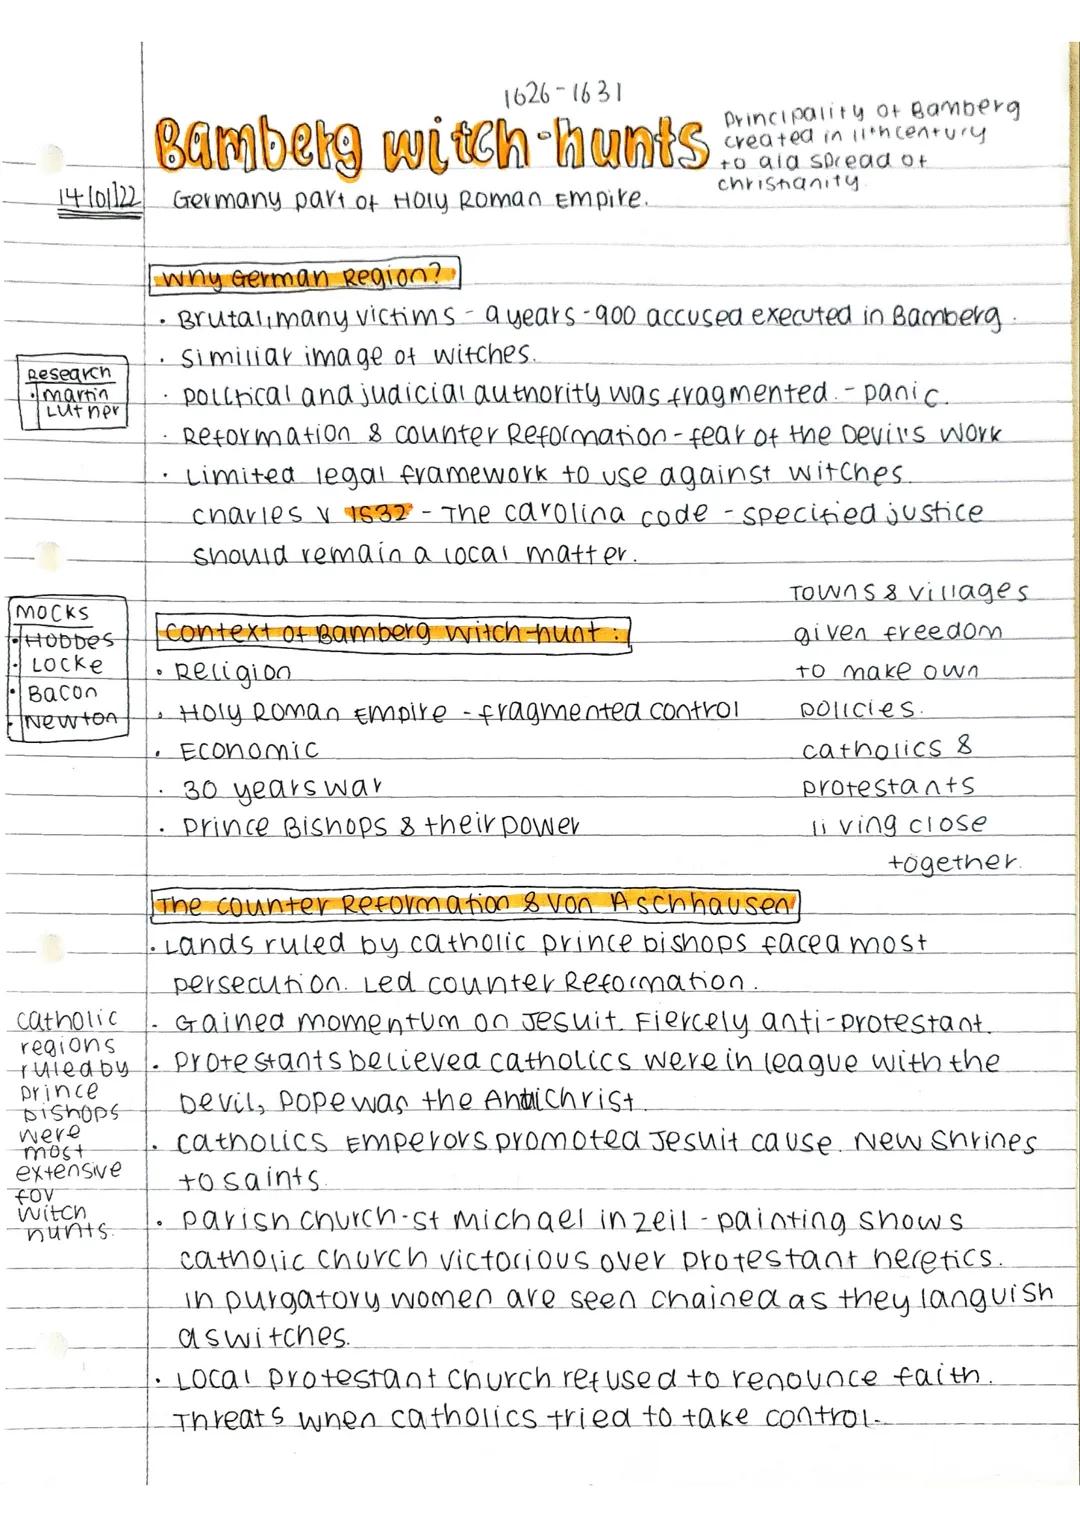 1626-1631
Bamberg witch-hunts
Principality of Bamberg
created in 11th century
to aid spread of
christianity.
14/01/22
Germany part of Holy Roman Empire.
Why German Region?
· Brutal, many victims - 9 years - 900 accused executed in Bamberg.
· Similiar image of witches.
Research
· Martin
Luther
· Political and judicial authority was fragmented. - panic.
· Reformation & counter Reformation - fear of the Devil's work
· Limited legal framework to use against witches.
Charles V 1532 - The Carolina code - specified justice
should remain a local matter.
Mocks
· Hobbes
· Locke
· Bacon
· Newton
Context of Bamberg witch-hunt:
· Religion
· Holy Roman Empire - fragmented control
· Economic
· 30 years war
· Prince Bishops & their power
Towns & villages
given freedom
to make own
policies.
catholics &
protestants
living close
together.
The counter Reformation & Von Aschhausen
· Lands ruled by catholic prince bishops faced most
persecution. Led counter Reformation.
· Gained momentum on Jesuit. Fiercely anti-protestant.
· Protestants believed catholics were in league with the
Devil, Pope was the Antichrist.
· Catholics Emperors promoted Jesuit cause. New Shrines
to saints.
· Parish church - St Michael in Zeil - painting shows
catholic church victorious over Protestant heretics.
In purgatory women are seen chained as they languish
as witches.
· Local Protestant church refused to renounce faith.
Threats when catholics tried to take control.
catholic
regions
ruled by
prince
bishops
were
most
extensive
for
witch
hunts.